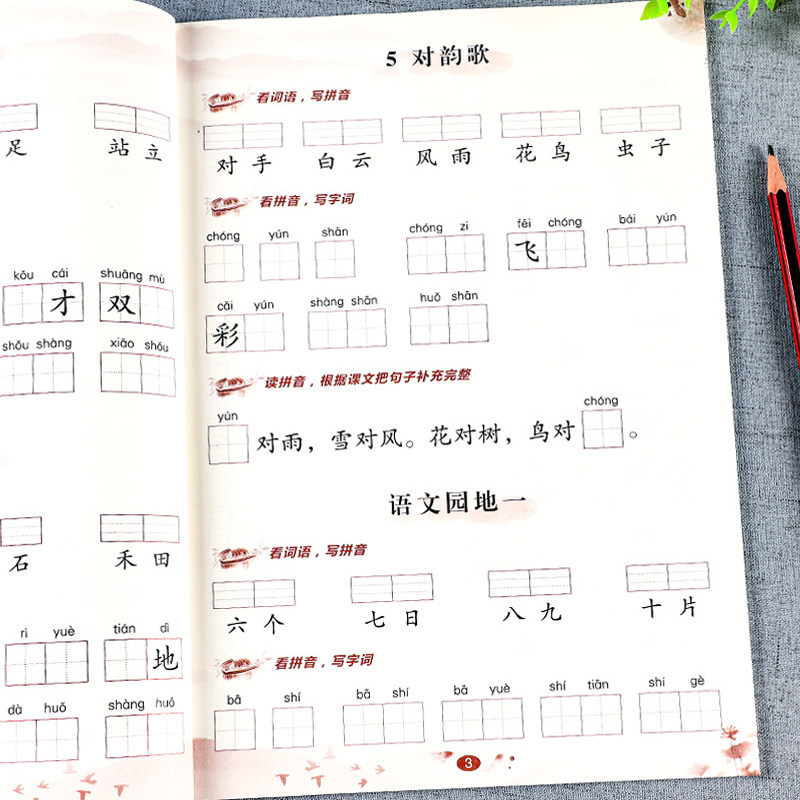 足 站 立
kǒu cái shuāng mù
才 双
shǒu shàng xiǎo shǒu
石 禾 田
rì yuè tián dì
地
dà huǒ shàng huǒ
5 对韵歌
看词语，写拼音
对 手 白 云 风 雨 花 鸟 虫 子
看拼音，写字词
chóng yún shān chóng zi fēi chóng bái yún
飞
cǎi yún shàng shān huǒ shān
彩
读拼音，根据课文把句子补充完整
yún chóng
对雨，雪对风。花对树，鸟对 。
语文园地一
看词语，写拼音
六 个 七 日 八 九 十 片
看拼音，写字词
bā shí bā shí bā yuè shí tiān shí gè
3